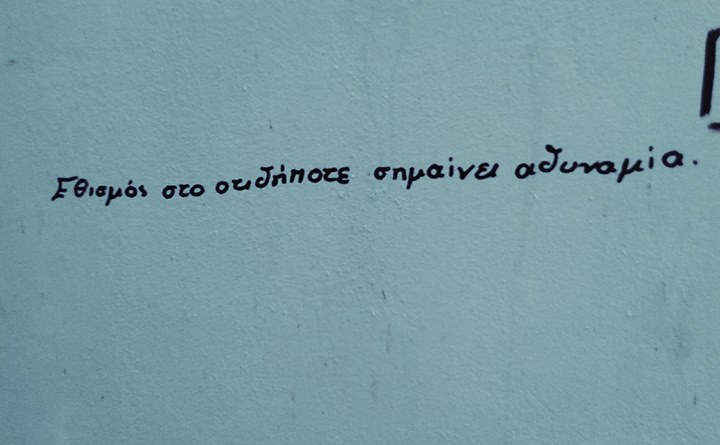 Εθισμός στο οτιδήποτε σημαίνει αδυναμία.